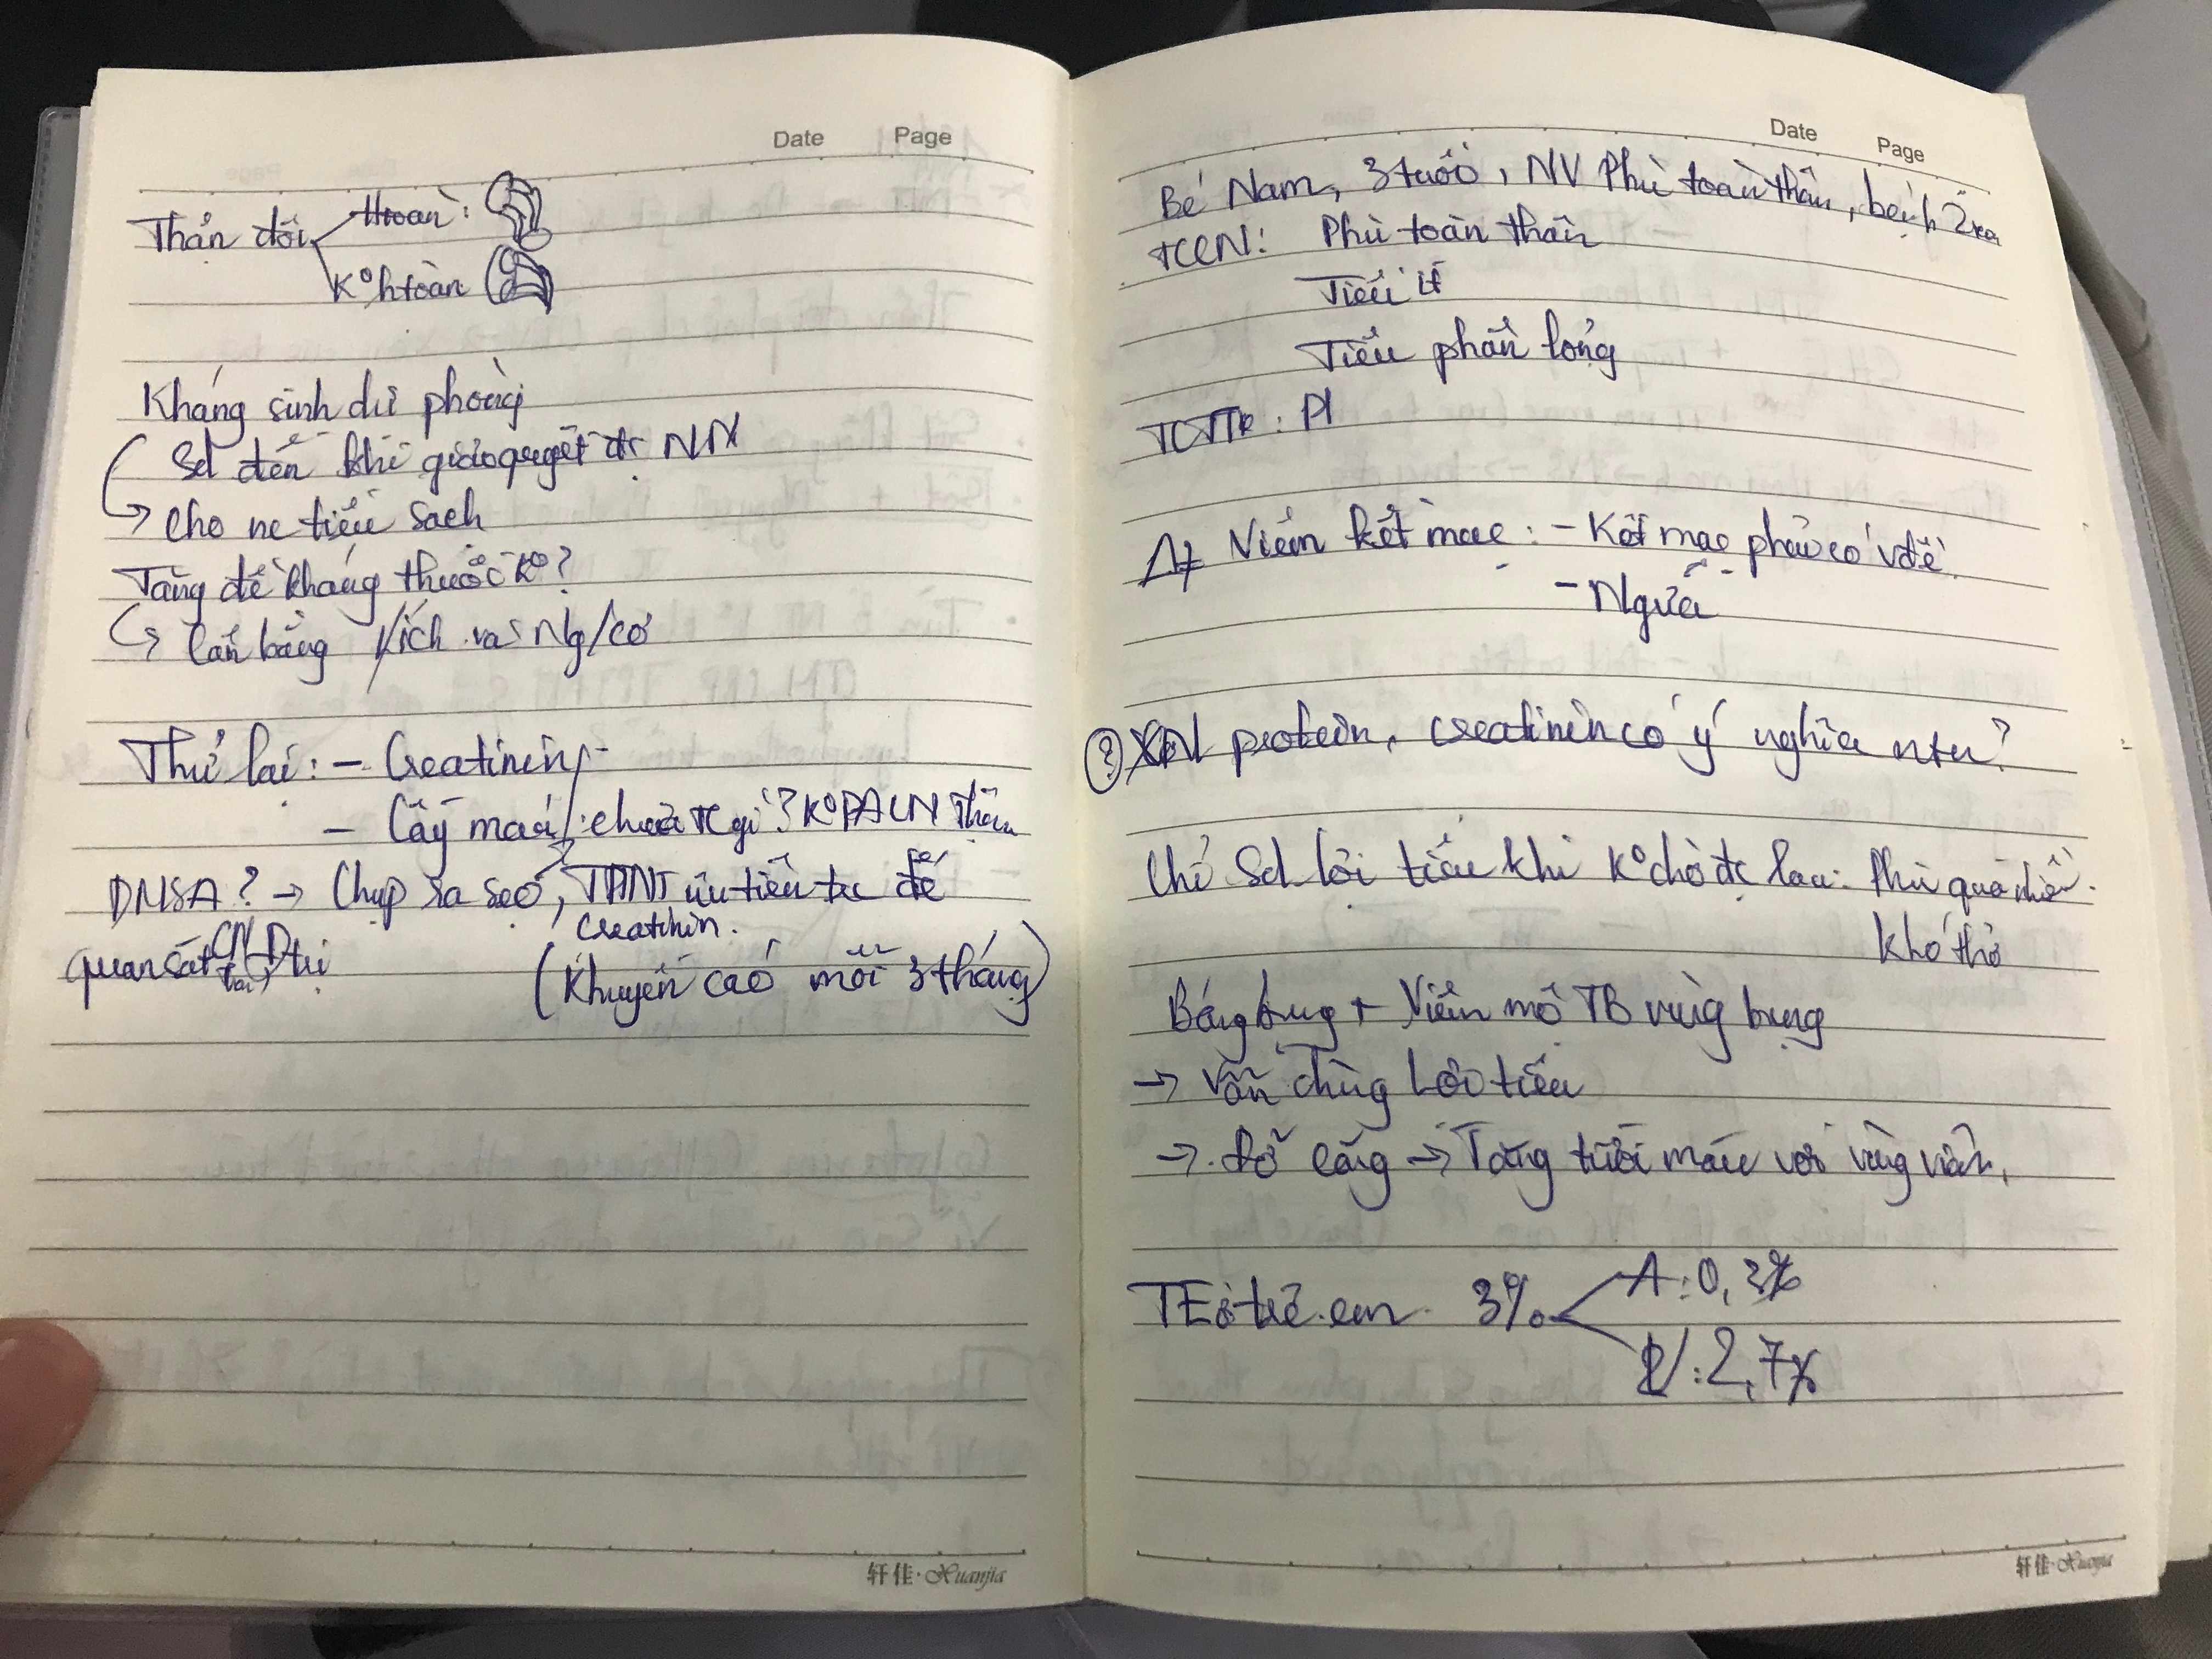 Date Page
Thận đôi
Htoàn:
Kº htoàn
Kháng sinh dự phòng
Sd đến khi giải quyết đc NN
→ Cho nc tiểu sạch
Tăng đề kháng thuốc Kº?
→ Cân bằng lợi ích và Ng/cơ
Thử lại: - Creatinin
- Cấy máu: chưa TC gì? Kº PA CN thận
DMSA? → Chụp ra sẹo, TPTNT ưu tiên tr để
Creatinin.
quan sát CN Đtrị
(Khuyến cáo mỗi 3 tháng)
轩佳·Xuanjia
Date Page
Bé Nam, 3 tuổi, NV Phù toàn thân, bệnh 2
TCCN: Phù toàn thân
Tiểu ít
Tiêu phân lỏng
TCTT: P
Δ≠ Viêm kết mạc: - Kết mạc phải có vđề
- Ngứa
? XN protein, creatinin có ý nghĩa ntn?
Chỉ Sd lợi tiểu khi Kº chờ đc lâu: Phù quá nhiều.
khó thở
Báng bụng + Viêm mô TB vùng bụng
→ Vẫn dùng Lợi tiểu
→ đỡ căng → Tăng tưới máu với vùng viêm.
TE ở trẻ em 3%
A: 0,3%
V: 2,7%
轩佳·Xuanjia